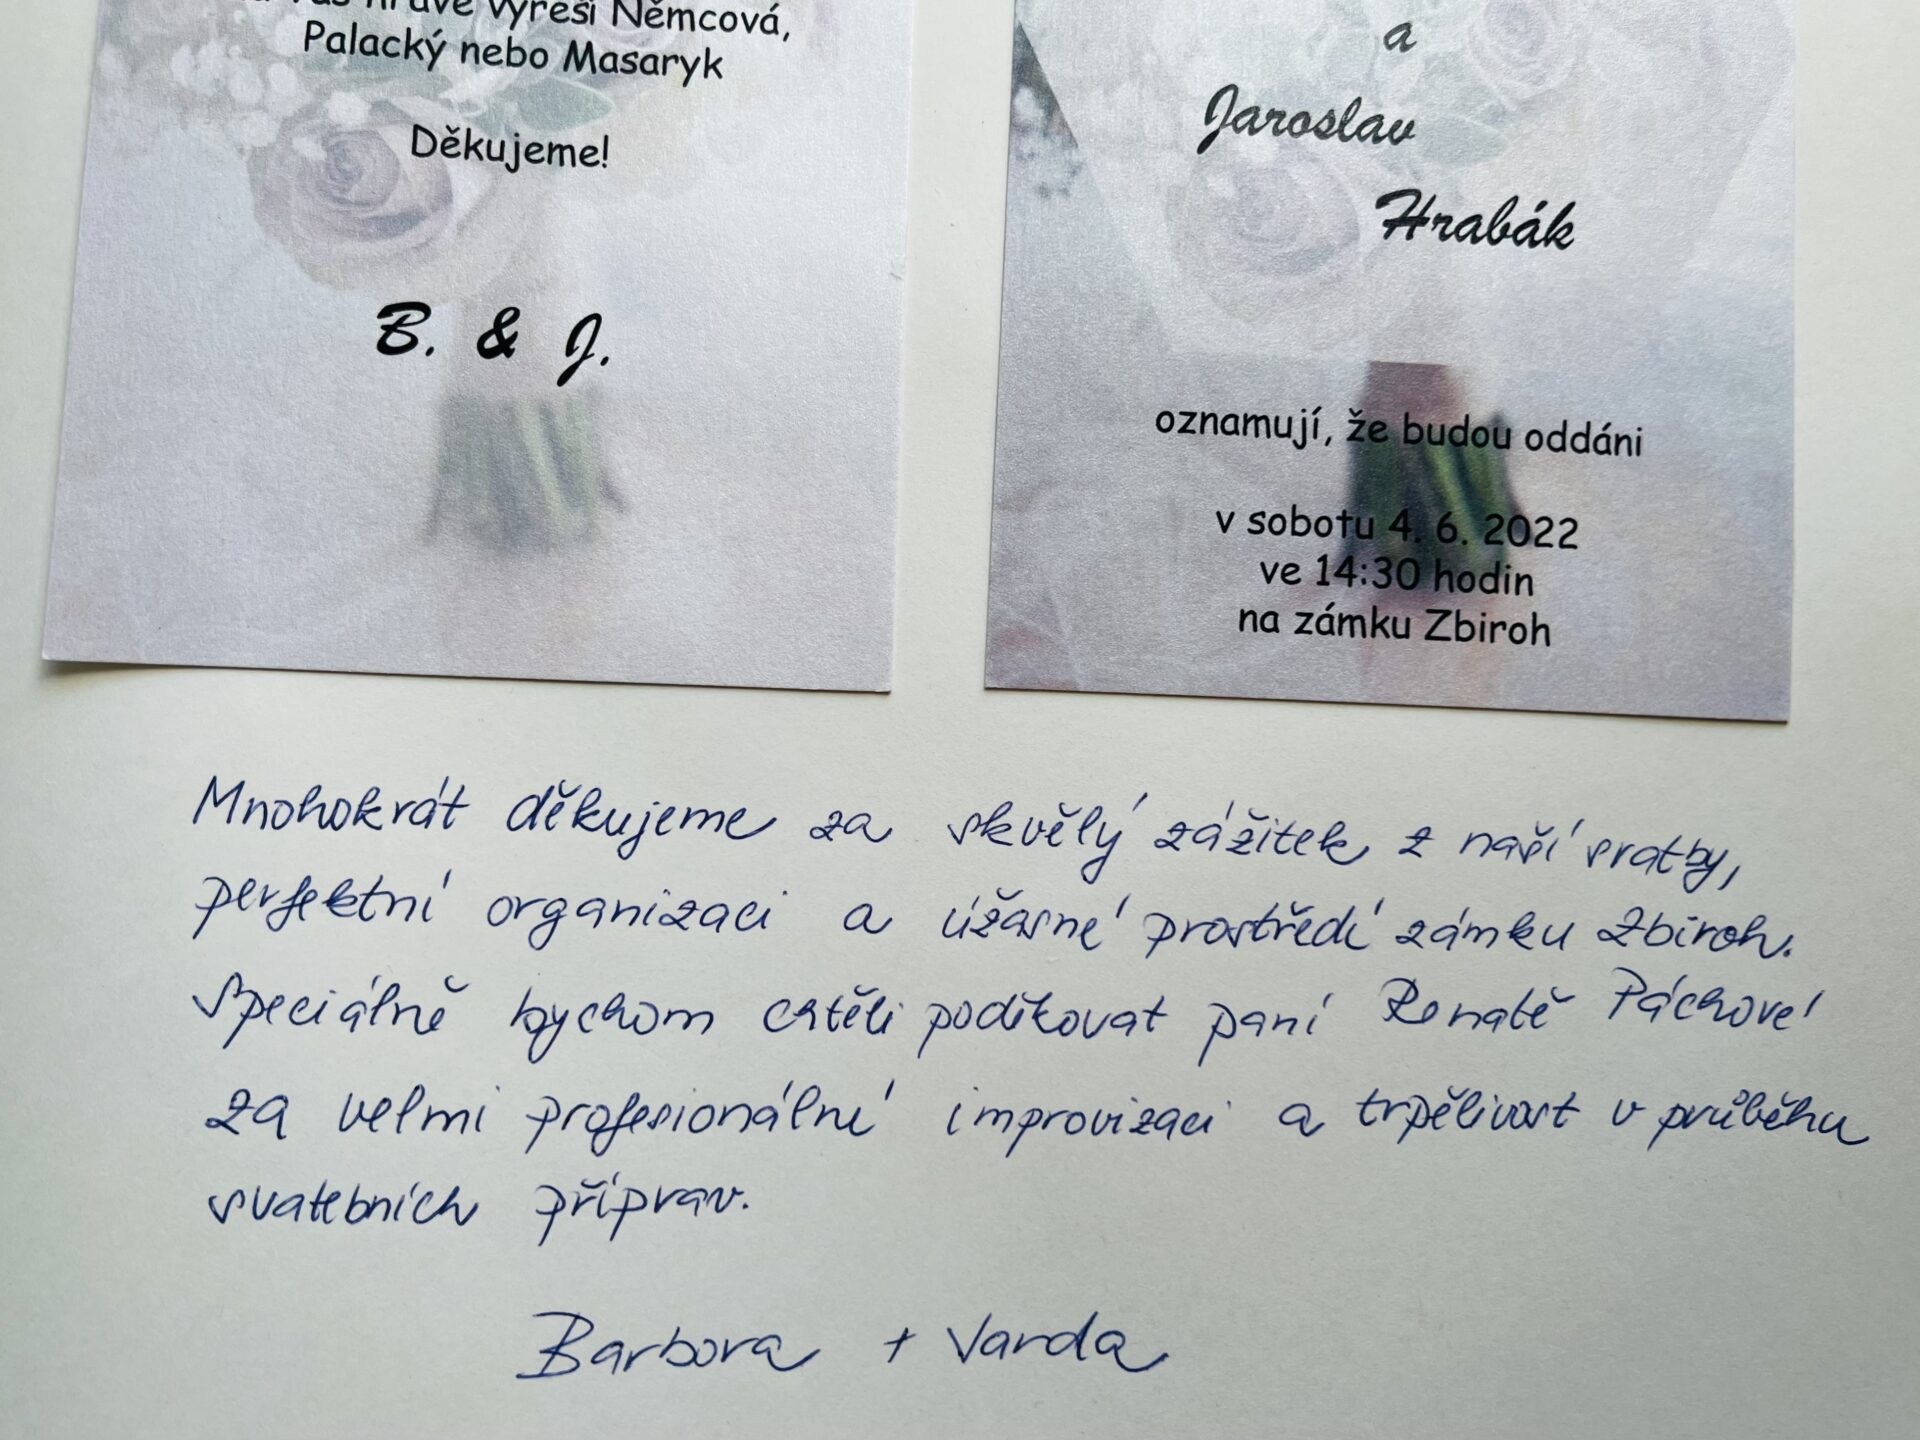 hravě vyřeší Němcová,
Palacký nebo Masaryk
Děkujeme!
B. & J.
a
Jaroslav
Hrabák
oznamují, že budou oddáni
v sobotu 4. 6. 2022
ve 14:30 hodin
na zámku Zbiroh
Mnohokrát děkujeme za skvělý zážitek z naší svatby,
perfektní organizaci a úžasné prostředí zámku Zbiroh.
Speciálně bychom chtěli poděkovat paní Renatě Páchové
za velmi profesionální improvizaci a trpělivost v průběhu
svatebních příprav.
Barbora + Jarda